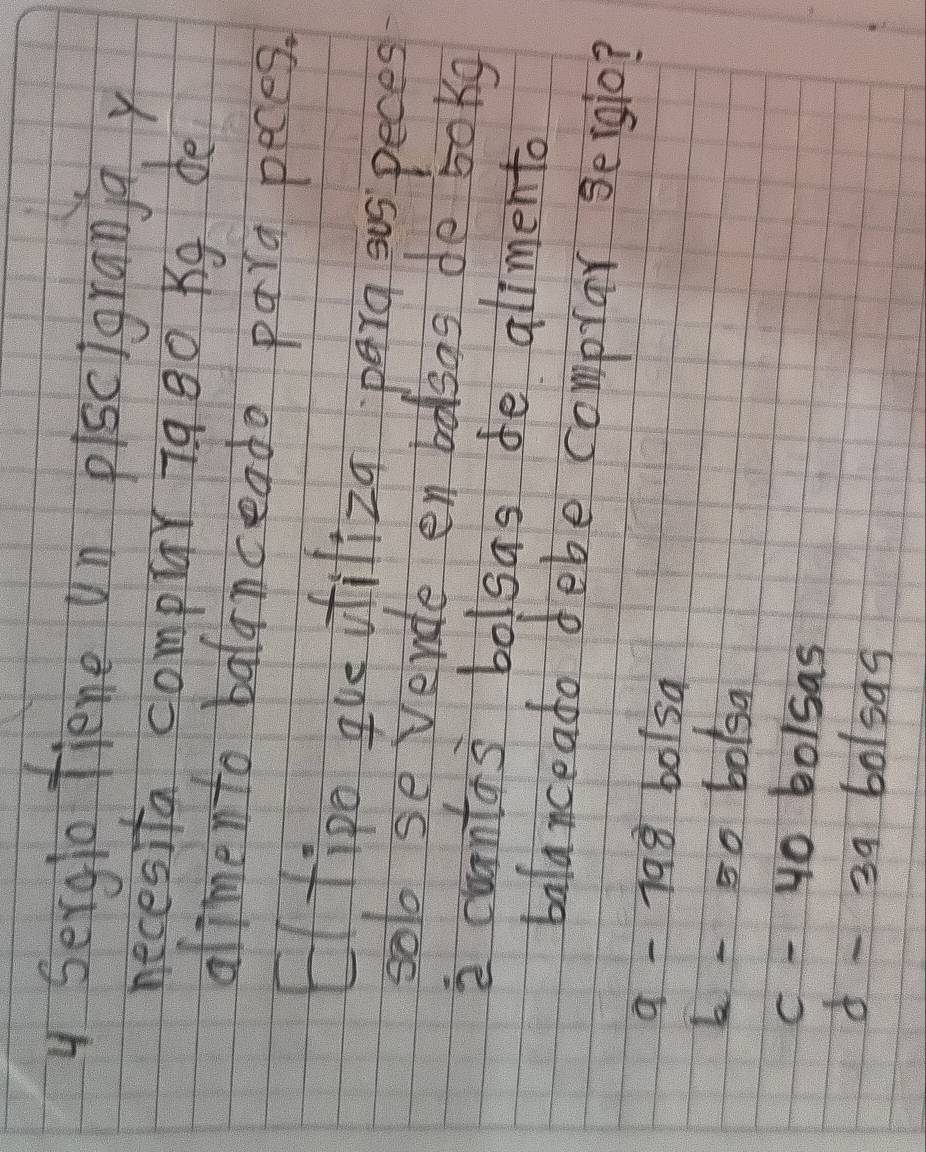 4 Sergio Tiene un piscigranja y
necesita comprar 1980 Kg de
alimento balanceado para peces.
El Tipo que utiliza para sus peces
solo se vende en bolsas de 50 Kg
¿ cuantas bolsas de alimento
balanceado debe comprar sergio?
a - 198 bolsa
b - 50 bolsa
c - 40 bolsas
d - 39 bolsas